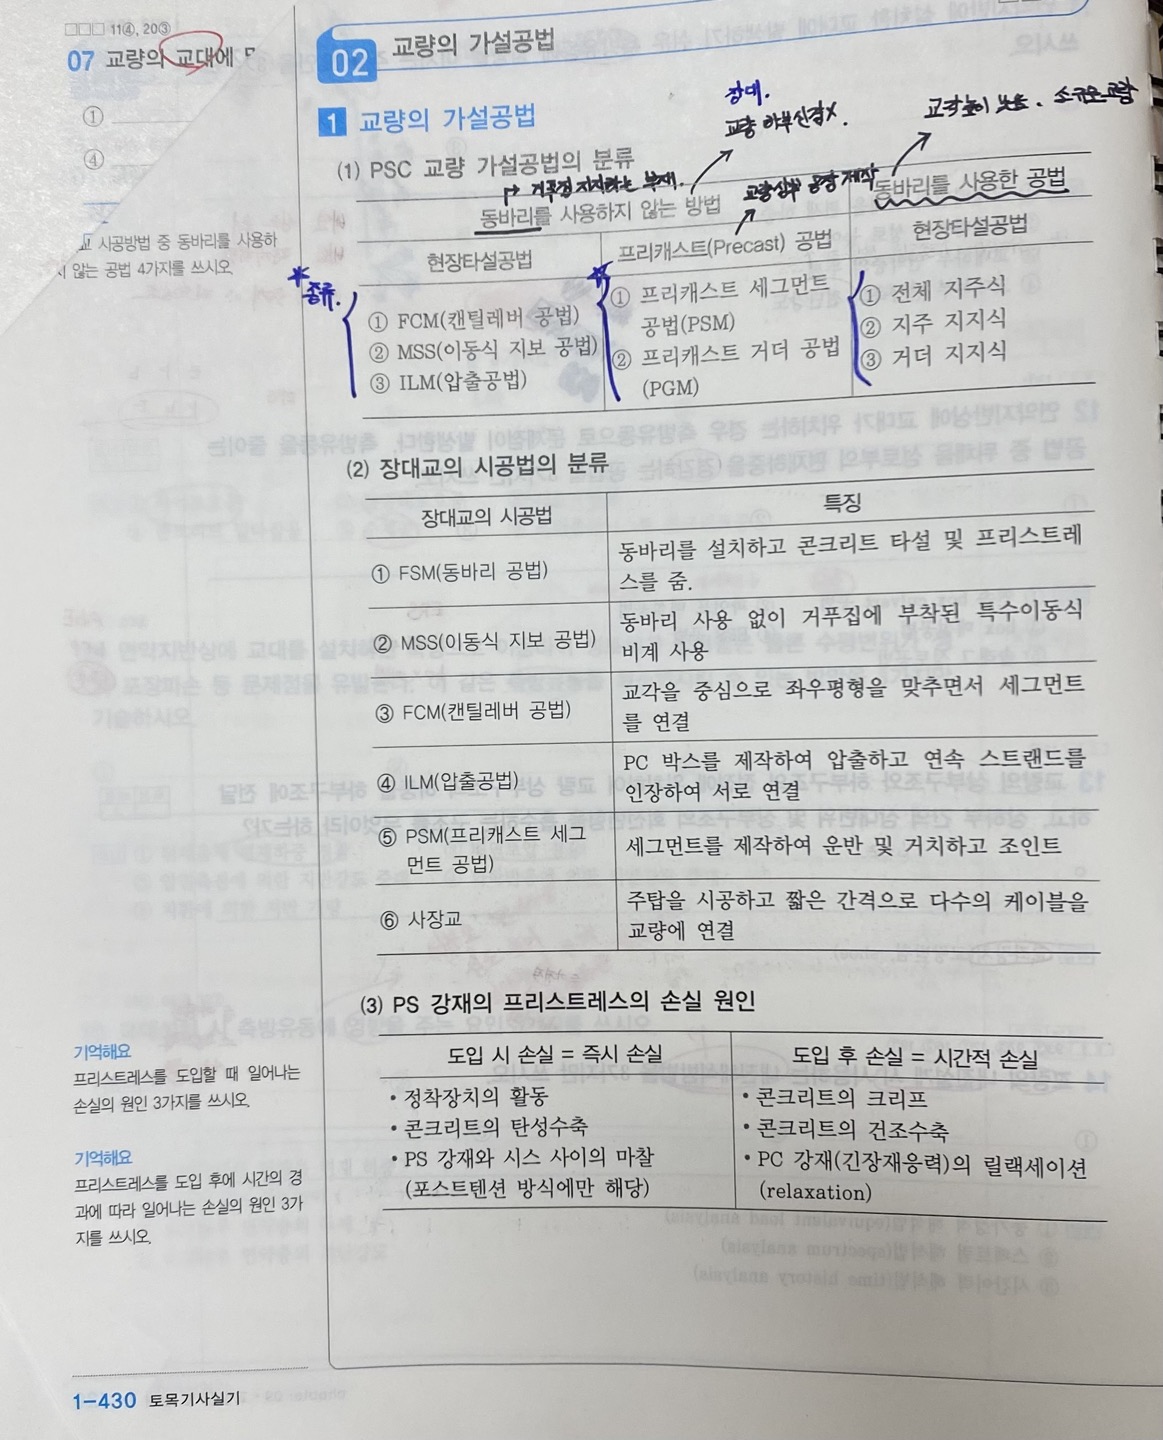 □□□ 11④, 20③
07 교량의 교대에
①
④
시공방법 중 동바리를 사용하
않는 공법 4가지를 쓰시오.
02 교량의 가설공법
1 교량의 가설공법
장대.
교량 하부신경X.
(1) PSC 교량 가설공법의 분류
거푸집 지지하는 부재.
교량상부 공장 제작
동바리를 사용하지 않는 방법
동바리를 사용한 공법
현장타설공법
프리캐스트(Precast) 공법
현장타설공법
종류.
① FCM(캔틸레버 공법)
② MSS(이동식 지보 공법)
③ ILM(압출공법)
① 프리캐스트 세그먼트
공법(PSM)
② 프리캐스트 거더 공법
(PGM)
① 전체 지주식
② 지주 지지식
③ 거더 지지식
(2) 장대교의 시공법의 분류
장대교의 시공법
특징
① FSM(동바리 공법)
동바리를 설치하고 콘크리트 타설 및 프리스트레
스를 줌.
② MSS(이동식 지보 공법)
동바리 사용 없이 거푸집에 부착된 특수이동식
비계 사용
③ FCM(캔틸레버 공법)
교각을 중심으로 좌우평형을 맞추면서 세그먼트
를 연결
④ ILM(압출공법)
PC 박스를 제작하여 압출하고 연속 스트랜드를
인장하여 서로 연결
⑤ PSM(프리캐스트 세그
먼트 공법)
세그먼트를 제작하여 운반 및 거치하고 조인트
⑥ 사장교
주탑을 시공하고 짧은 간격으로 다수의 케이블을
교량에 연결
(3) PS 강재의 프리스트레스의 손실 원인
도입 시 손실 = 즉시 손실
도입 후 손실 = 시간적 손실
• 정착장치의 활동
• 콘크리트의 탄성수축
• PS 강재와 시스 사이의 마찰
(포스트텐션 방식에만 해당)
• 콘크리트의 크리프
• 콘크리트의 건조수축
• PC 강재(긴장재응력)의 릴랙세이션
(relaxation)
기억해요
프리스트레스를 도입할 때 일어나는
손실의 원인 3가지를 쓰시오.
기억해요
프리스트레스를 도입 후에 시간의 경
과에 따라 일어나는 손실의 원인 3가
지를 쓰시오.
1-430 토목기사실기